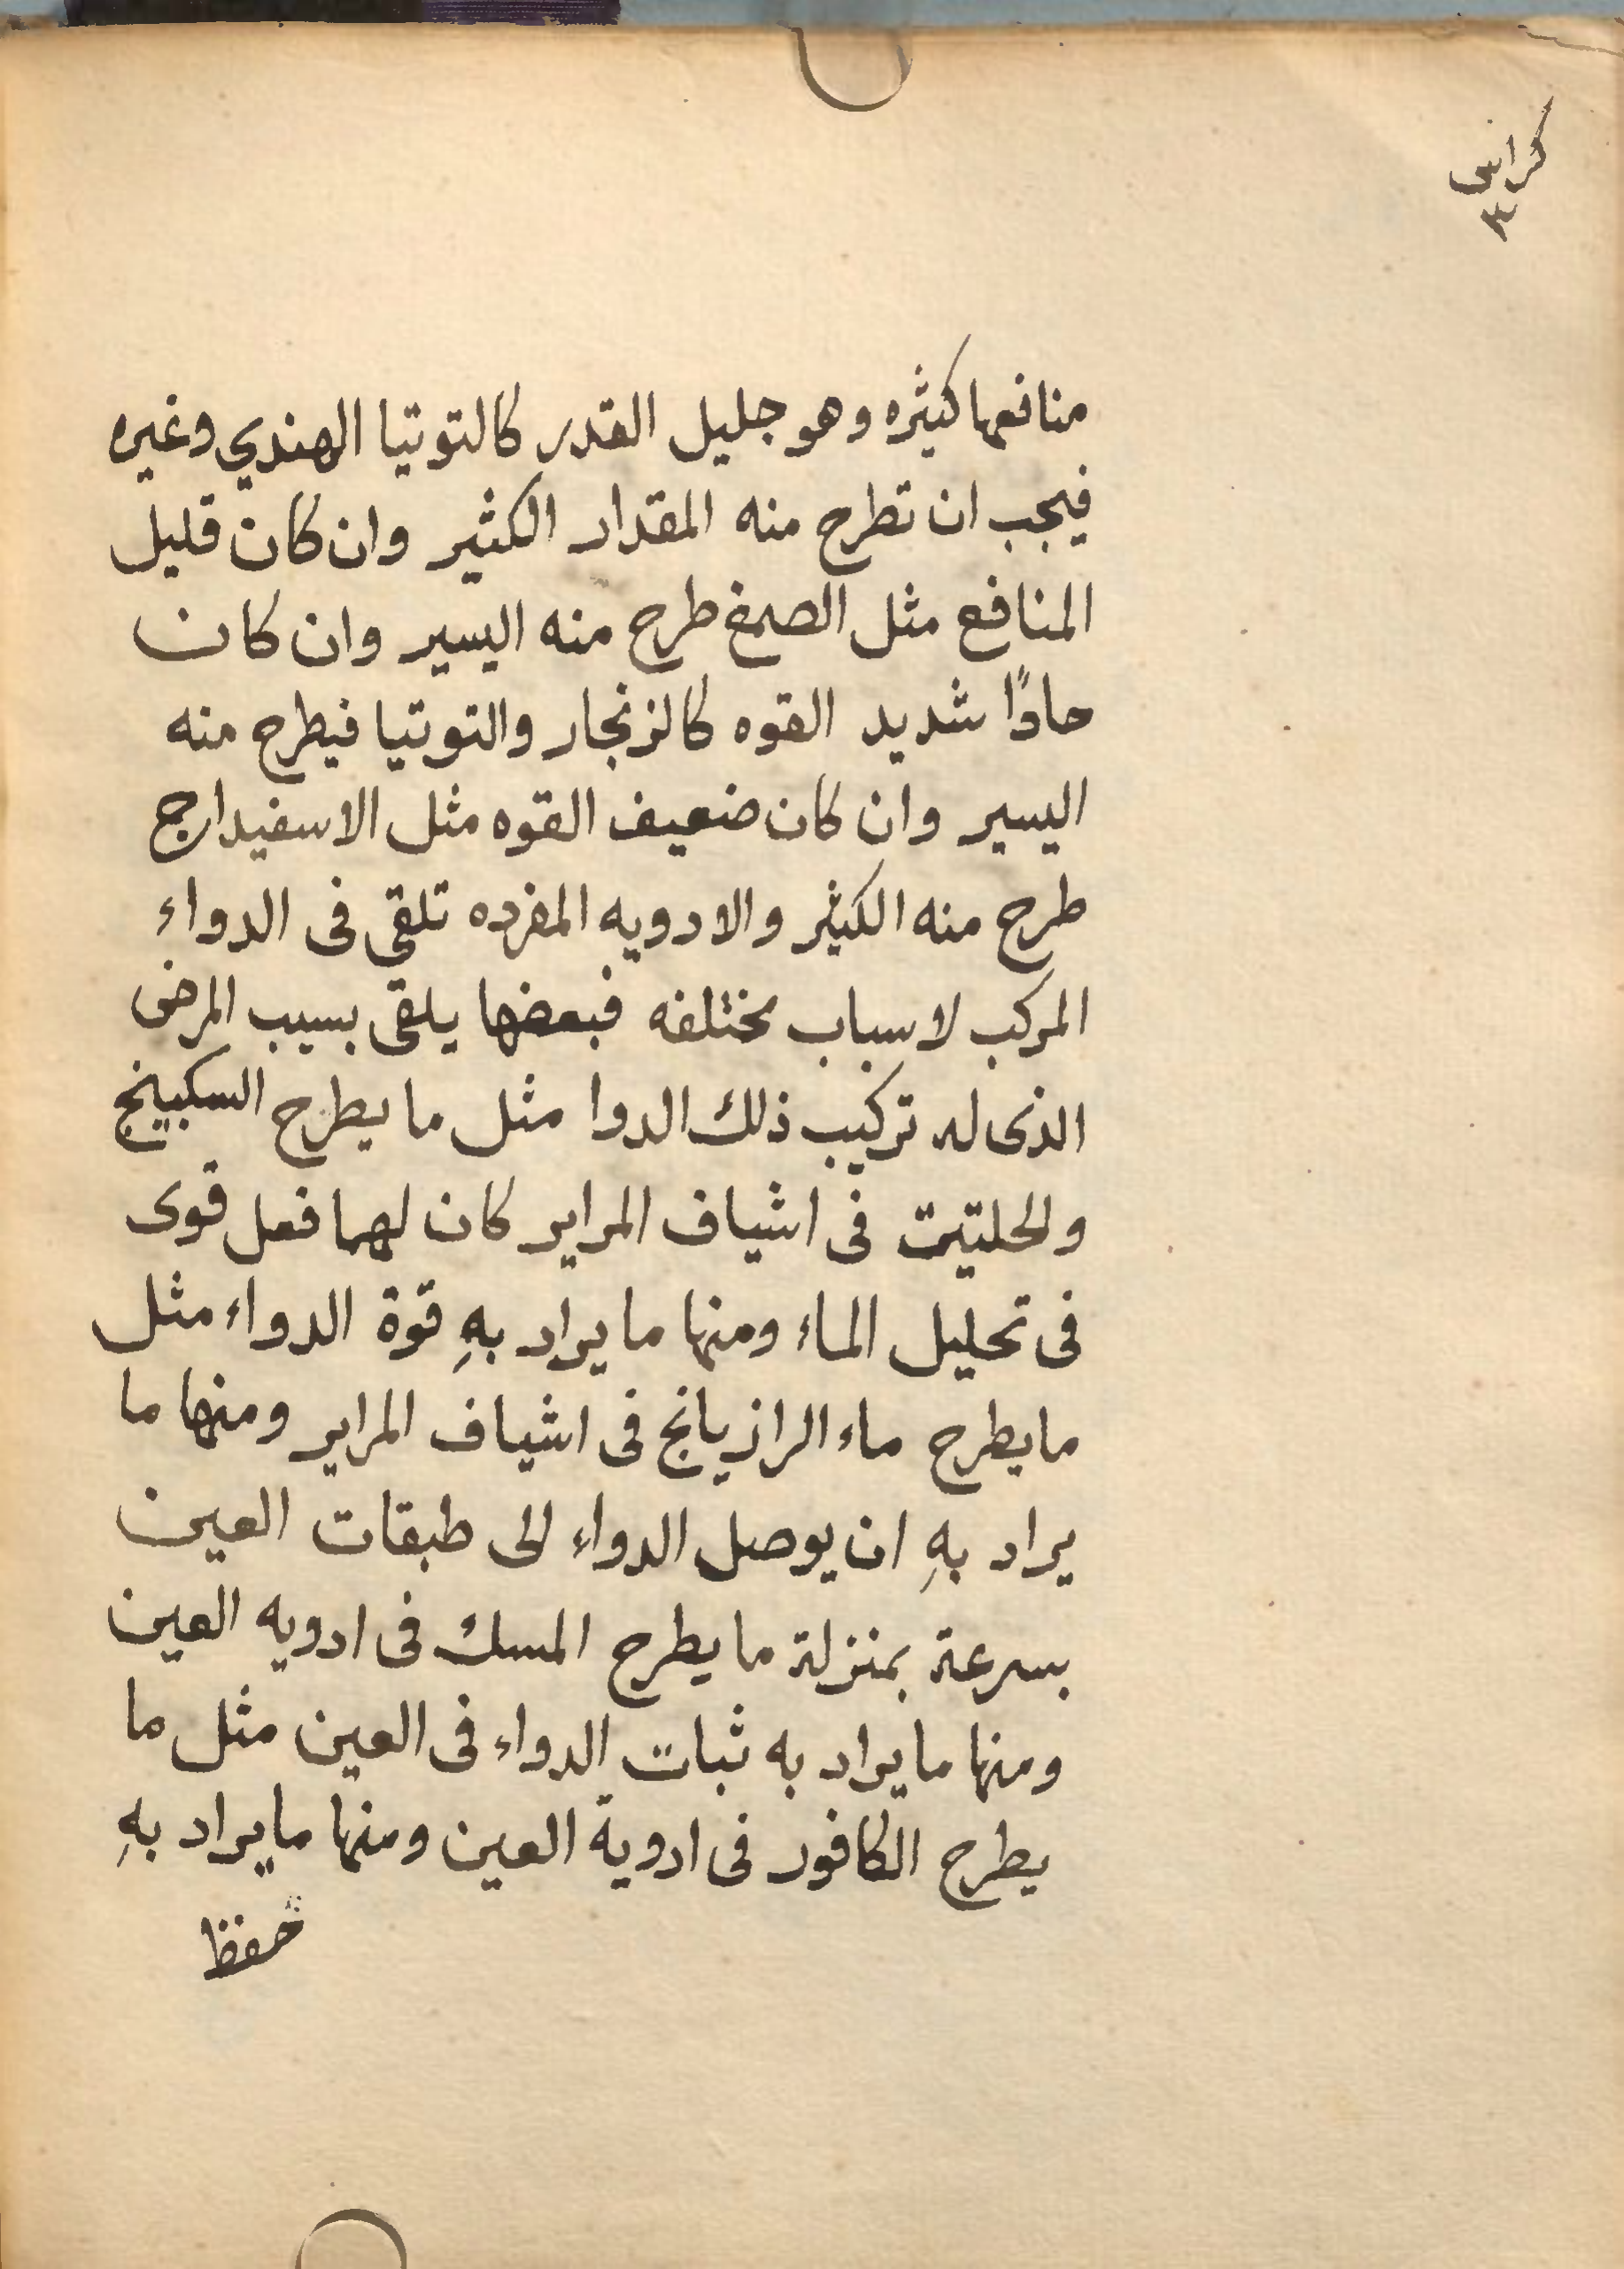 منافعها كثيره وهو جليل القدر كالتوتيا الهندي وغيره
فيجب ان تطرح منه المقدار الكثير وان كان قليل
المنافع مثل الصمغ طرح منه اليسير وان كان
حادًا شديد القوه كالزنجار والتوتيا فيطرح منه
اليسير وان كان ضعيف القوه مثل الاسفيداج
طرح منه الكثير والادويه المفرده تلقى فى الدواء
المركب لاسباب مختلفه فبعضها يلقى بسبب المرض
الذى له تركيب ذلك الدوا مثل ما يطرح السكبينج
والحلتيت فى اشياف المراير كان لهما فعل قوى
فى تحليل الماء ومنها ما يراد بهِ قوة الدواء مثل
ما يطرح ماء الرازيانج فى اشياف المراير ومنها ما
يراد بهِ ان يوصل الدواء الى طبقات العين
بسرعة بمنزلة ما يطرح المسك فى ادويه العين
ومنها ما يراد به ثبات الدواء فى العين مثل ما
يطرح الكافور فى ادوية العين ومنها ما يراد بهِ